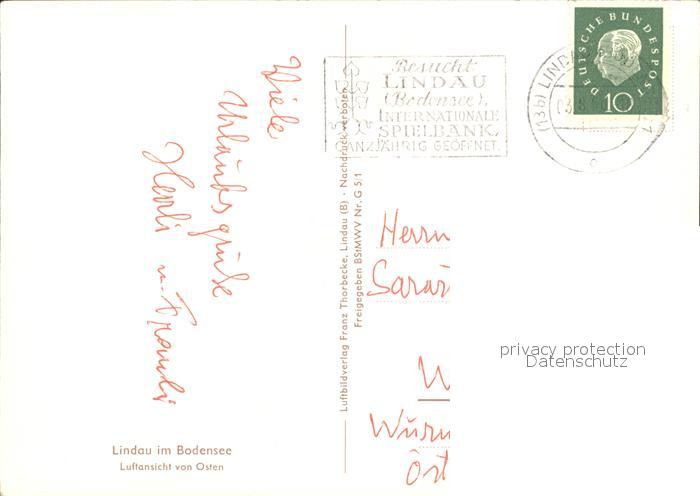 Viele
Urlaubsgrüße
Besucht
LINDAU
(Bodensee),
INTERNATIONALE
SPIELBANK,
GANZJÄHRIG GEÖFFNET.
(13b) LINDAU
DEUTSCHE BUNDESPOST
10
Luftbildverlag Franz Thorbecke, Lindau (B) · Nachdruck verboten
Freigegeben BStMWV Nr. G 5/1
Herrn
privacy protection
Datenschutz
Lindau im Bodensee
Luftansicht von Osten